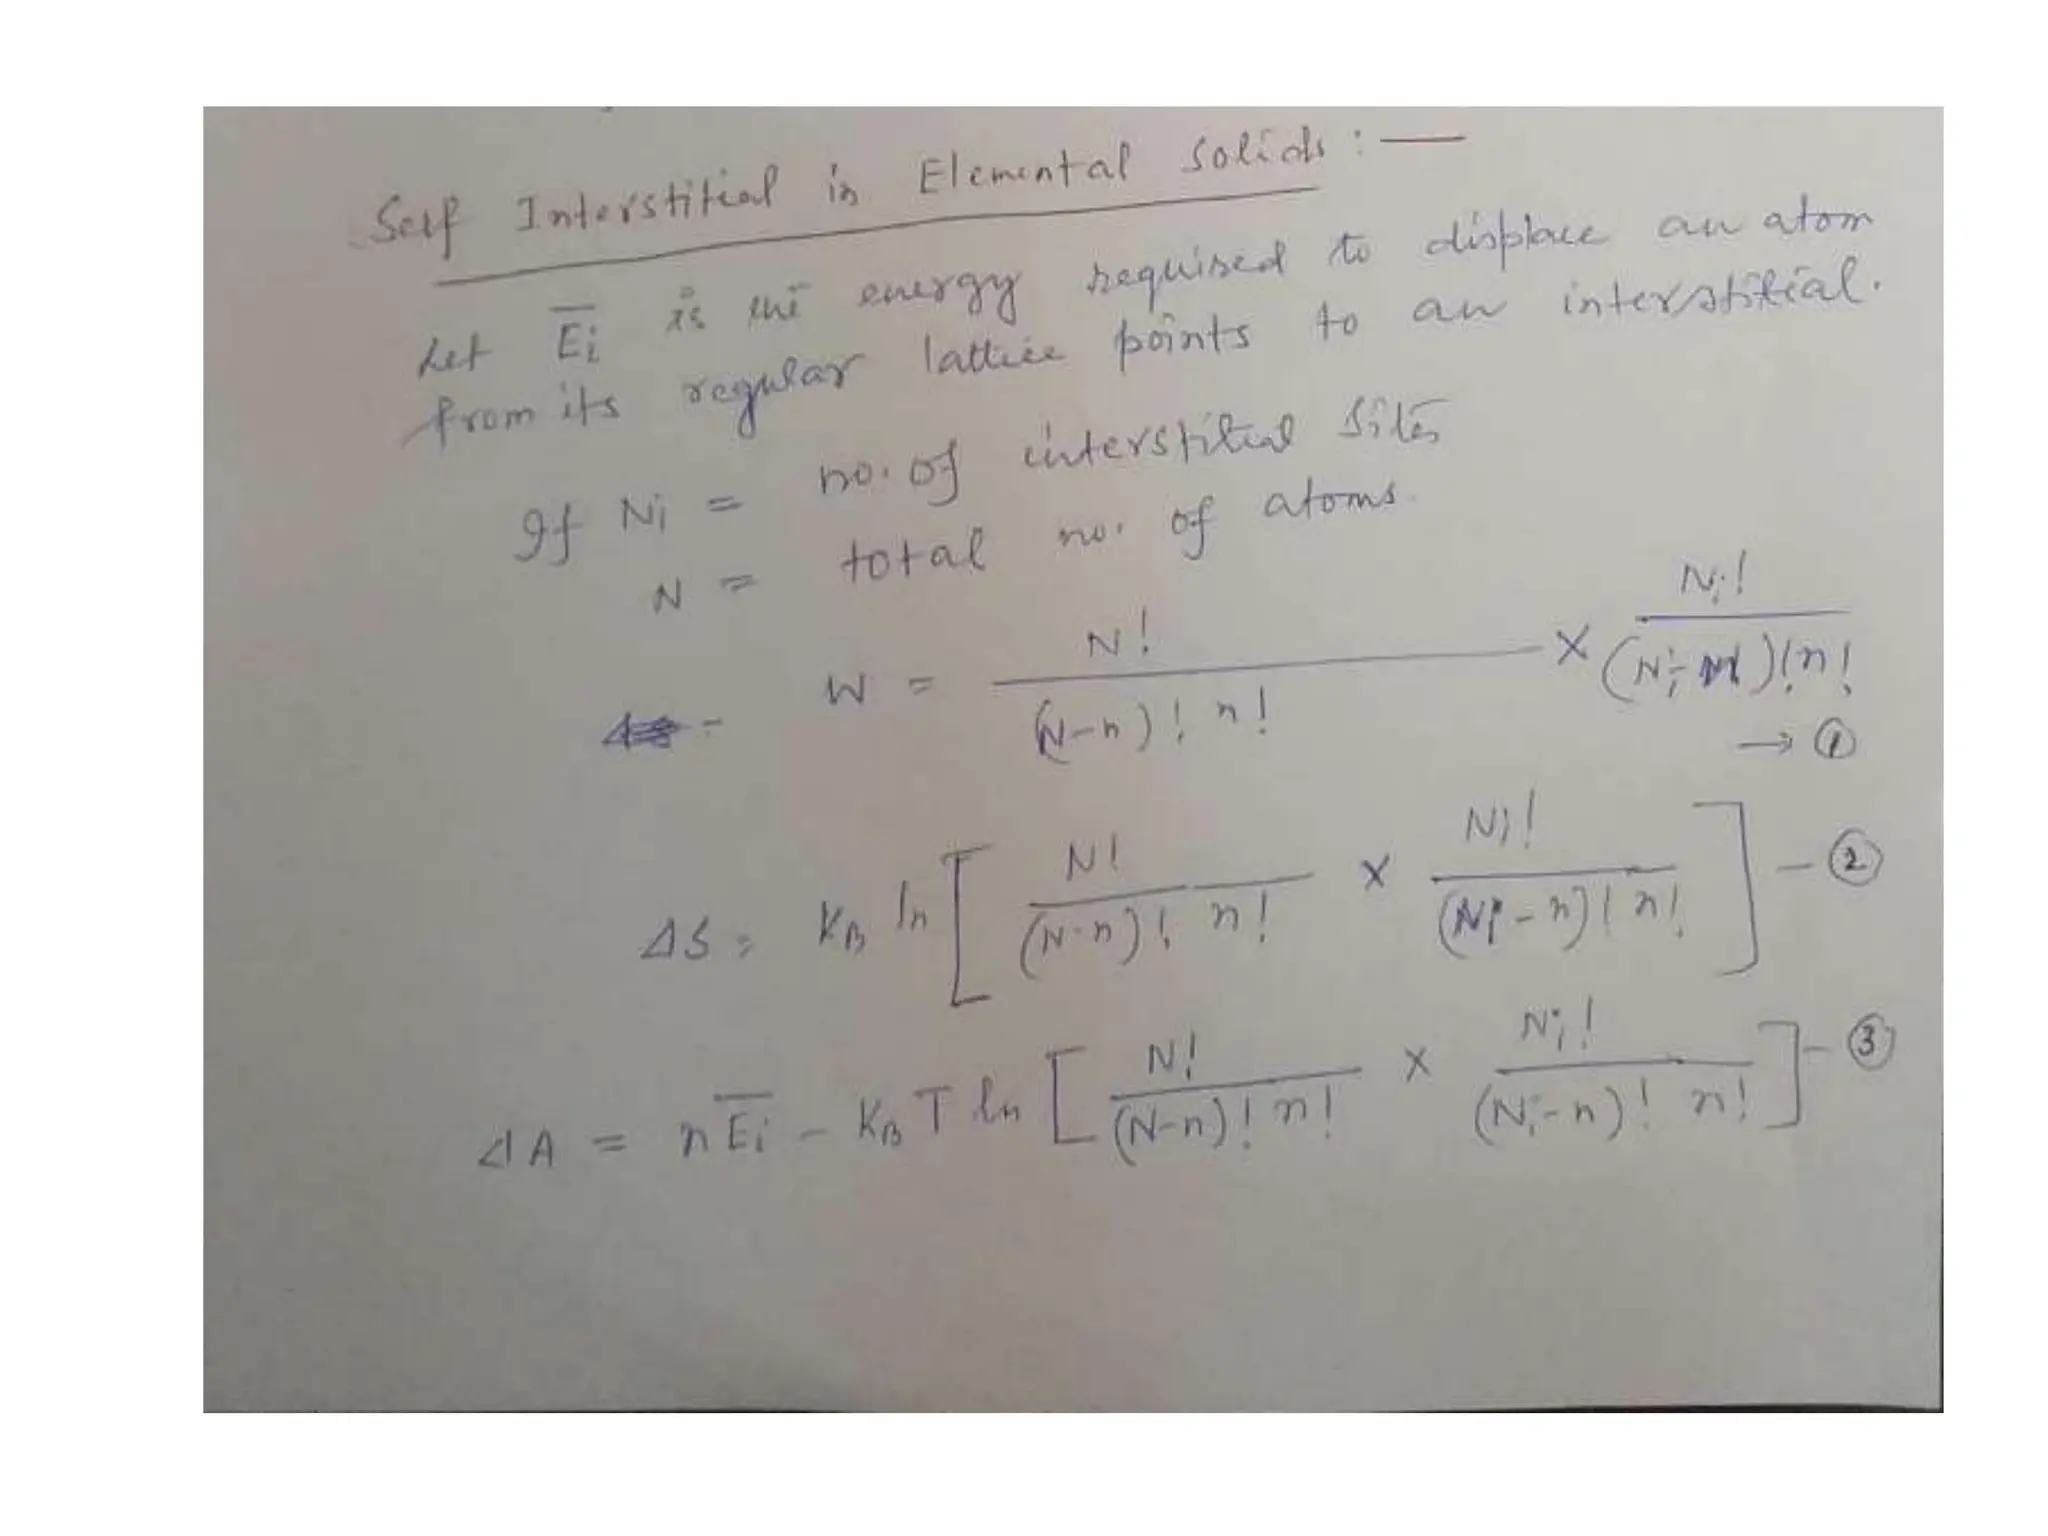 Self Interstitial in Elemental Solids :—
Let E̅i is the energy required to displace an atom
from its regular lattice points to an interstitial.
If Ni = no. of interstitial sites
N = total no. of atoms.
W = N! / (N-n)! n! × Ni! / (Ni-n)! n! → ①
ΔS = KB ln [ N! / (N-n)! n! × Ni! / (Ni-n)! n! ] - ②
ΔA = n E̅i - KB T ln [ N! / (N-n)! n! × Ni! / (Ni-n)! n! ] - ③